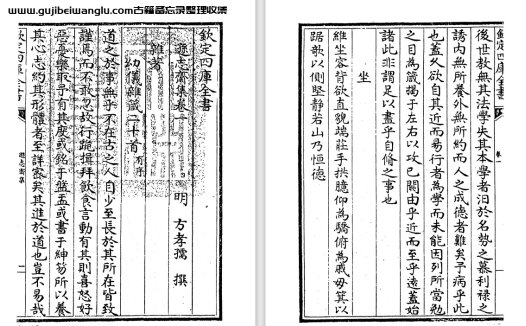 www.gujibeiwanglu.com古籍备忘录整理收集
欽定四庫全書
遜志齋集卷一
明 方孝孺 撰
雜著
幼儀雜箴二十首 有序
道之於事無乎不在古之人自少至長於其所在皆致
謹焉而不敢忽故行跪揖拜飲食言動有其則喜怒好
惡憂樂取予有其度或銘于盤盂或書于紳笏所以養
其心志約其形體者至詳密矣其進於道也豈不易哉
欽定四庫全書
遜志齋集
一
後世教無其法學失其本學者汨於名勢之慕利祿之
誘内無所養外無所約而人之成德者難矣予病乎此
也蓋久欲自其近而易行者為學而未能因列所當勉
之目為箴揭于左右以攻己闕由乎近而至乎逺蓋始
諸此非謂足以盡乎自修之事也
坐
維坐容背欲直貌端莊手拱臆仰為驕俯為戚毋箕以
踞欹以側堅静若山乃恒德
欽定四庫全書
卷一